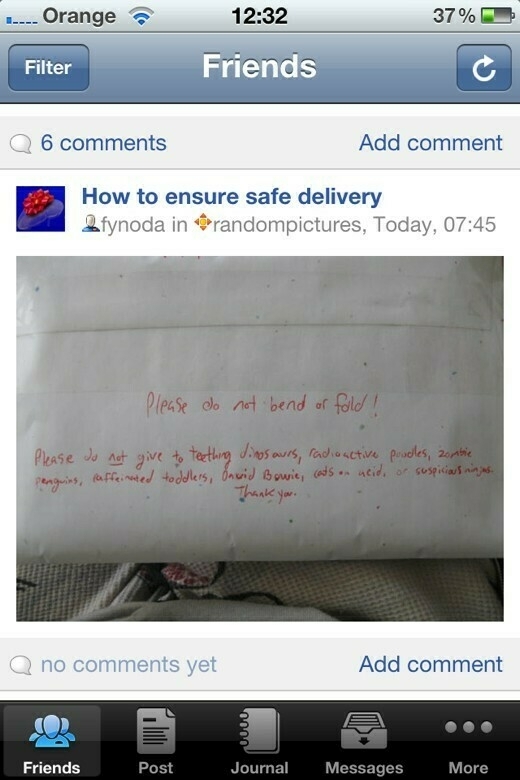 Orange 12:32 37%
Filter Friends
6 comments Add comment
How to ensure safe delivery
fynoda in randompictures, Today, 07:45
Please do not bend or fold!
Please do not give to teething dinosaurs, radioactive poodles, zombie
penguins, caffeinated toddlers, David Bowie, cats on acid, or suspicious ninjas.
Thank you.
no comments yet Add comment
Friends Post Journal Messages More